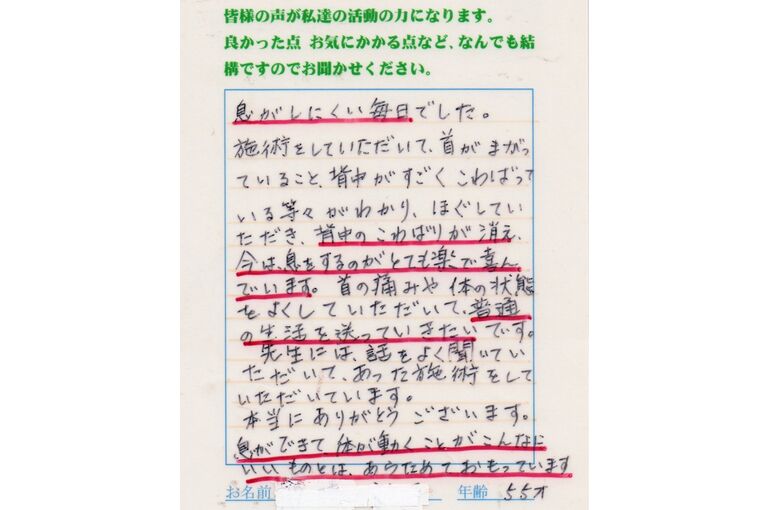 皆様の声が私達の活動の力になります。
良かった点 お気にかかる点など、なんでも結
構ですのでお聞かせください。
息がしにくい毎日でした。
施術をしていただいて、首がまがっ
ていること、背中がすごくこわばって
いる等々がわかり、ほぐしてい
ただき、背中のこわばりが消え、
今は、息をするのがとても楽で喜ん
でいます。首の痛みや体の状態
をよくしていただいて、普通
の生活を送っていきたいです。
先生には、話をよく聞いてい
ただいて、あった施術をして
いただいています。
本当にありがとうございます。
息ができて、体が動くことがこんなに
いいものとは、あらためておもっています
お名前 年齢 55才